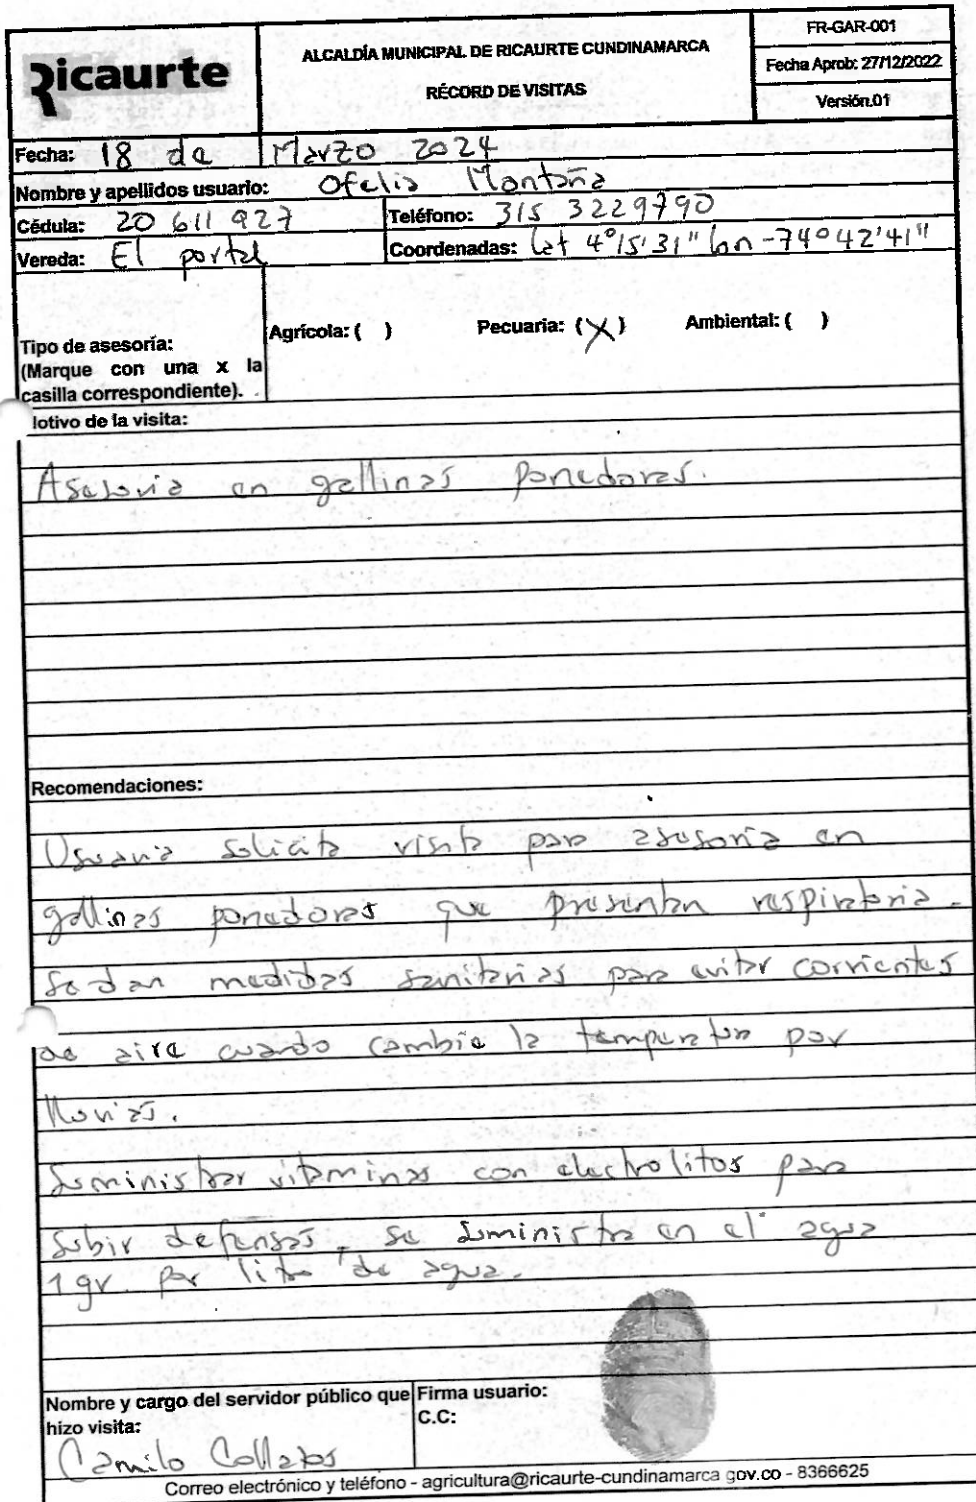 Ricaurte
ALCALDÍA MUNICIPAL DE RICAURTE CUNDINAMARCA
RÉCORD DE VISITAS
FR-GAR-001
Fecha Aprob: 27/12/2022
Versión.01
Fecha: 18 de Marzo 2024
Nombre y apellidos usuario: Ofelia Montaña
Cédula: 20 611 927 Teléfono: 315 3229790
Vereda: El portal Coordenadas: Lat 4°15'31" lon -74°42'41"
Tipo de asesoría:
(Marque con una x la
casilla correspondiente).
Agrícola: ( ) Pecuaria: (X) Ambiental: ( )
lotivo de la visita:
Asesoria en gallinas ponedoras.
Recomendaciones:
Usuaria solicita visita para asesoria en
gallinas ponedoras que presentan respiratoria.
Se dan medidas sanitarias para evitar corrientes
de aire cuando cambie la temperatura por
lluvias.
Suministrar vitaminas con electrolitos para
subir defensas, se suministra en el agua
1 gr. por litro de agua.
Nombre y cargo del servidor público que
hizo visita:
Camilo Collazos
Firma usuario:
C.C:
Correo electrónico y teléfono - agricultura@ricaurte-cundinamarca gov.co - 8366625